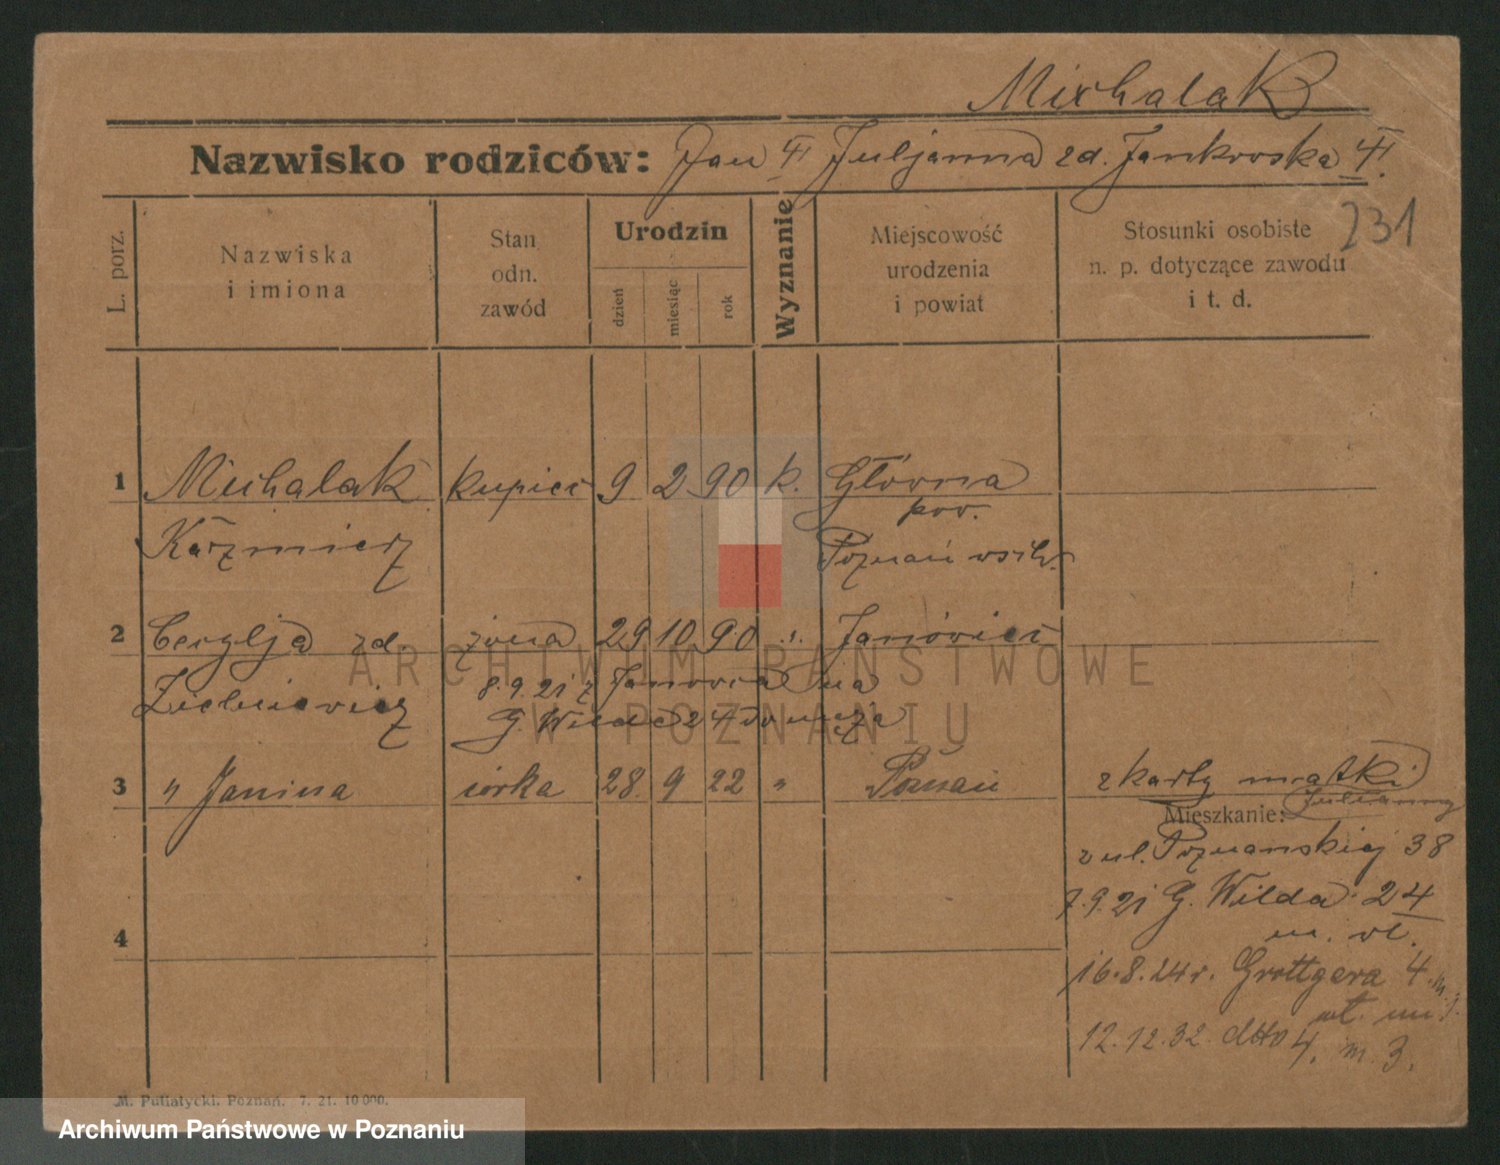 Michalak
Nazwisko rodziców: Jan Juljanna zd. Jankowska
231
L. porz.
Nazwiska i imiona
Stan odn. zawód
Urodzin
dzień
miesiąc
rok
Wyznanie
Miejscowość urodzenia i powiat
Stosunki osobiste n. p. dotyczące zawodu i t. d.
1 Michalak kupiec 9 2 90 k. Główna
pow.
Kazmierz Poznań wsch.
2 Cecylja zd. żona 29 10 90 " Janówiec
8.9.21 z Janowca na
G. Wilda 24 do męża
3 " Janina córka 28 9 22 " Poznań
z karty matki
Julianny
Mieszkanie:
z ul. Poznanskiej 38
7.9.21 G. Wilda 24
m. wł.
4
16.8.24r. Grottgera 4
wł.
12.12.32. dtto 4. m 3.
M. Putiatycki. Poznań. 7. 21. 10 000.
ARCHIWUM PAŃSTWOWE
W POZNANIU
Archiwum Państwowe w Poznaniu